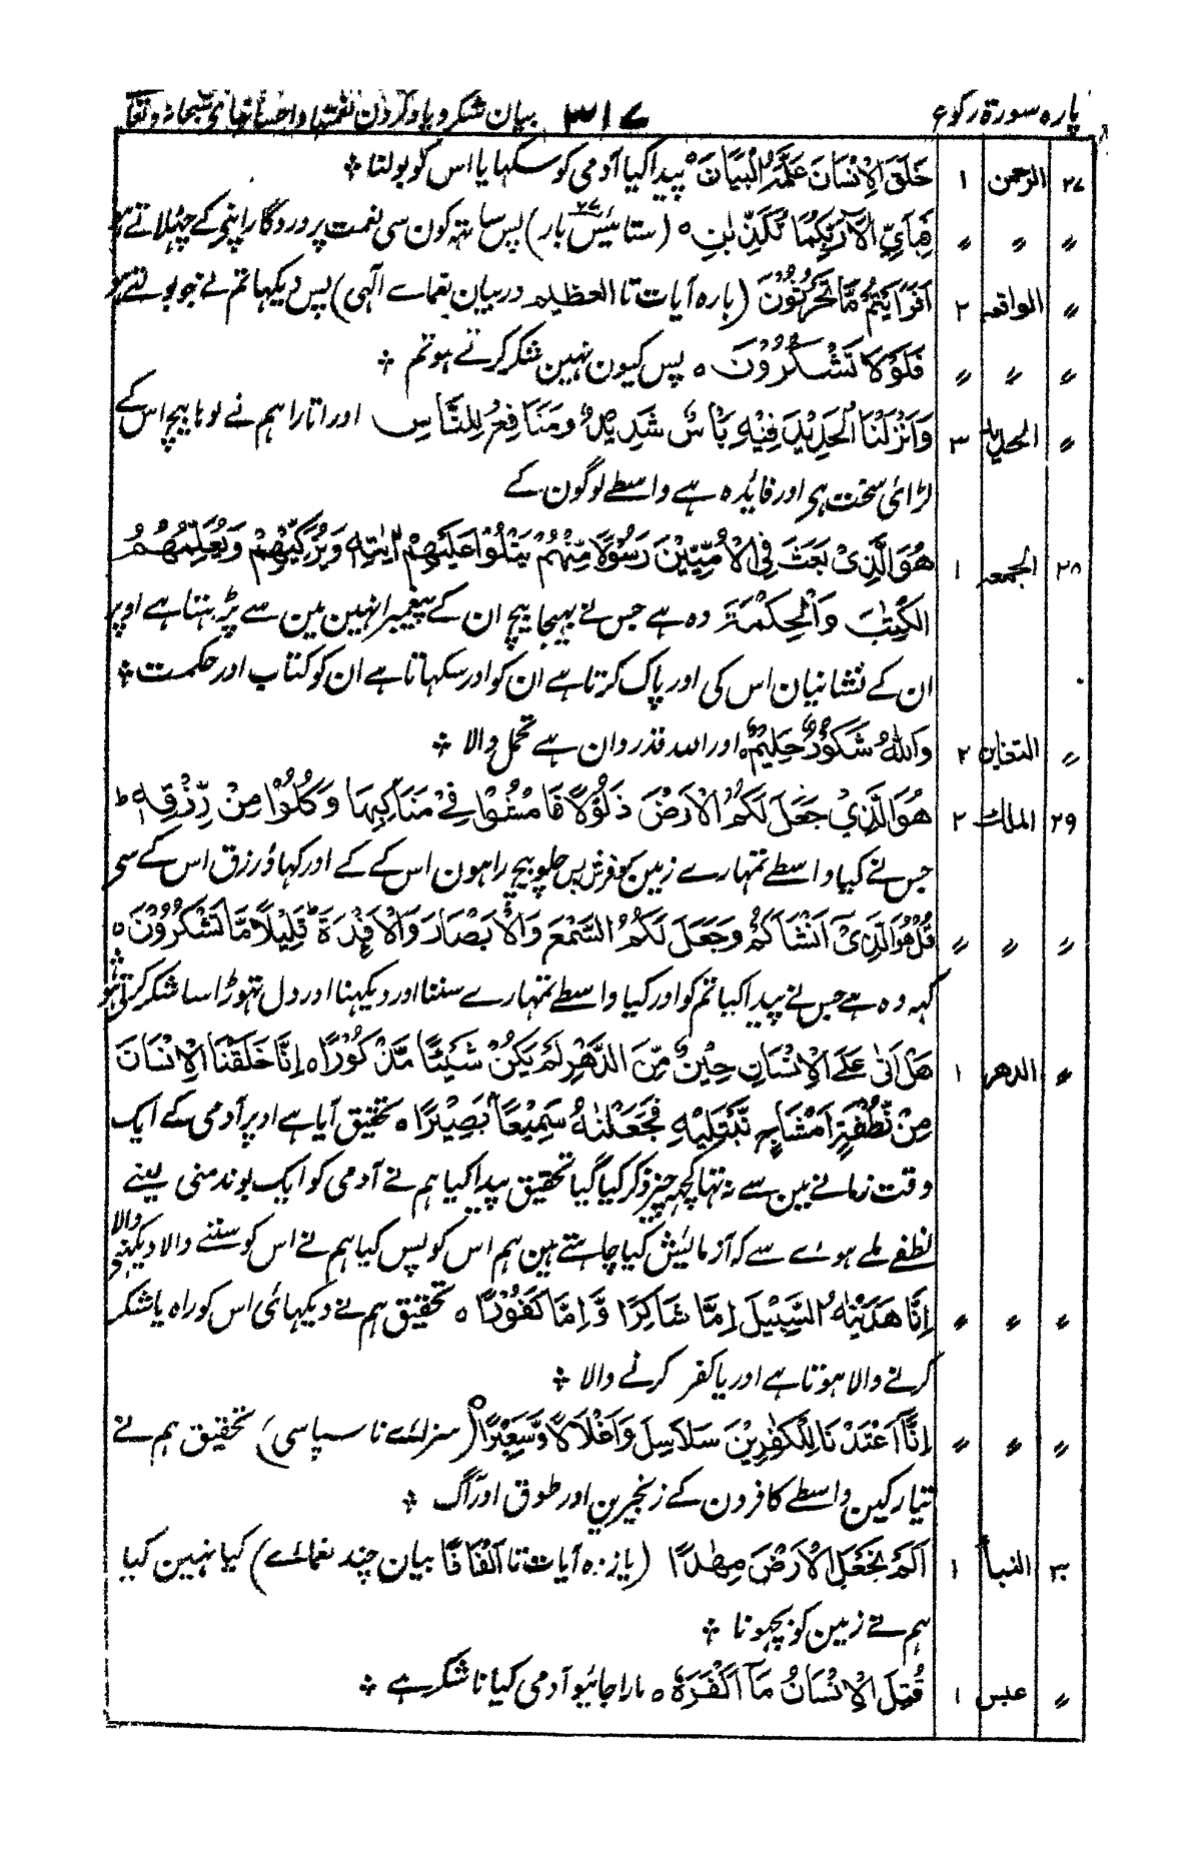 پارہ سورۃ رکوع ۳۱۷ بیان شکر و یاد کردن نعمتہا و احسانہای سبحانہ و تعالی
۲۷ الرحمن ۱ خَلَقَ الْاِنْسَانَ عَلَّمَهُ الْبَيَانَ پیدا کیا آدمی کو سکہایا اس کو بولنا ❖
〃 〃 〃 فَبِاَيِّ اٰلَآءِ رَبِّكُمَا تُكَذِّبٰنِ ہ (ستائیس ۲۷ بار) پس ساتہہ کون سی نعمت پروردگار اپنی کے جہٹلاتے ہو
〃 الواقعہ ۲ اَفَرَاَيْتُمْ مَّا تَحْرُثُوْنَ (بارہ آیات تا العظیم در بیان نعمائے الٰہی) پس دیکہا تم نے جو بوتے ہو
〃 〃 〃 فَلَوْلَا تَشْكُرُوْنَ ہ پس کیون نہین شکر کرتے ہو تم ❖
〃 الحدید ۳ وَاَنْزَلْنَا الْحَدِيْدَ فِيْهِ بَاْسٌ شَدِيْدٌ وَمَنَافِعُ لِلنَّاسِ اور اتارا ہم نے لوہا بیچ اس کے
لڑائی سخت ہی اور فایٔدہ ہے واسطے لوگون کے
۲۸ الجمعہ ۱ هُوَ الَّذِیْ بَعَثَ فِی الْاُمِّيّٖنَ رَسُوْلًا مِّنْهُمْ يَتْلُوْا عَلَيْهِمْ اٰيٰتِهٖ وَيُزَكِّيْهِمْ وَيُعَلِّمُهُمُ
الْكِتٰبَ وَالْحِكْمَةَ وہ ہے جس نے بہیجا بیچ ان کے پیغمبر انہین مین سے پڑہتا ہے اوپر
ان کے نشانیان اس کی اور پاک کرتا ہے ان کو اور سکہاتا ہے ان کو کتاب اور حکمت ❖
〃 التغابن ۲ وَاللّٰهُ شَكُوْرٌ حَلِيْمٌ ہ اور اللہ قدردان ہے تحمل والا ❖
۲۹ الملک ۲ هُوَ الَّذِيْ جَعَلَ لَكُمُ الْاَرْضَ ذَلُوْلًا فَامْشُوْا فِيْ مَنَاكِبِهَا وَكُلُوْا مِنْ رِّزْقِهٖ ط
جس نے کیا واسطے تمہارے زمین کو فرش پس چلو بیچ راہون اس کے کے اور کہاؤ رزق اس کے سے
〃 〃 〃 قُلْ هُوَ الَّذِیْٓ اَنْشَاَكُمْ وَجَعَلَ لَكُمُ السَّمْعَ وَالْاَبْصَارَ وَالْاَفْـِٕدَةَ ؕ قَلِيْلًا مَّا تَشْكُرُوْنَ ہ
کہہ وہ ہے جس نے پیدا کیا تم کو اور کیا واسطے تمہارے سننا اور دیکہنا اور دل تہوڑا سا شکر کرتے ہو
〃 الدهر ۱ هَلْ اَتٰی عَلَى الْاِنْسَانِ حِيْنٌ مِّنَ الدَّهْرِ لَمْ يَكُنْ شَيْئًا مَّذْكُوْرًا ہ اِنَّا خَلَقْنَا الْاِنْسَانَ
مِنْ نُّطْفَةٍ اَمْشَاجٍ نَّبْتَلِيْهِ فَجَعَلْنٰهُ سَمِيْعًا بَصِيْرًا ہ تحقیق آیا ہے اوپر آدمی کے ایک
وقت زمانے مین سے نہ تہا کچہہ چیز ذکر کیا گیا تحقیق پیدا کیا ہم نے آدمی کو ایک بوند منی یعنے
نطفے ملے ہوئے سے کہ آزمایٔش کیا چاہتے ہین ہم اس کو پس کیا ہم نے اس کو سننے والا دیکہنے والا
〃 〃 〃 اِنَّا هَدَيْنٰهُ السَّبِيْلَ اِمَّا شَاكِرًا وَّاِمَّا كَفُوْرًا ہ تحقیق ہم نے دیکہائی اس کو راہ یا شکر
کرنے والا ہوتا ہے اور یا کفر کرنے والا ❖
〃 〃 〃 اِنَّآ اَعْتَدْنَا لِلْكٰفِرِيْنَ سَلَاسِلَ وَاَغْلَالًا وَّسَعِيْرًا (سزائے ناسپاسی) تحقیق ہم نے
تیار کین واسطے کافرون کے زنجیرین اور طوق اور آگ ❖
۳۰ النبأ ۱ اَلَمْ نَجْعَلِ الْاَرْضَ مِهٰدًا (یازدہ آیات تا اَلْفَافًا بیان چند نعمائے) کیا نہین کیا
ہم نے زمین کو بچہونا ❖
〃 عبس ۱ قُتِلَ الْاِنْسَانُ مَآ اَكْفَرَهٗ ہ مارا جائیو آدمی کیا ناشکر ہے ❖